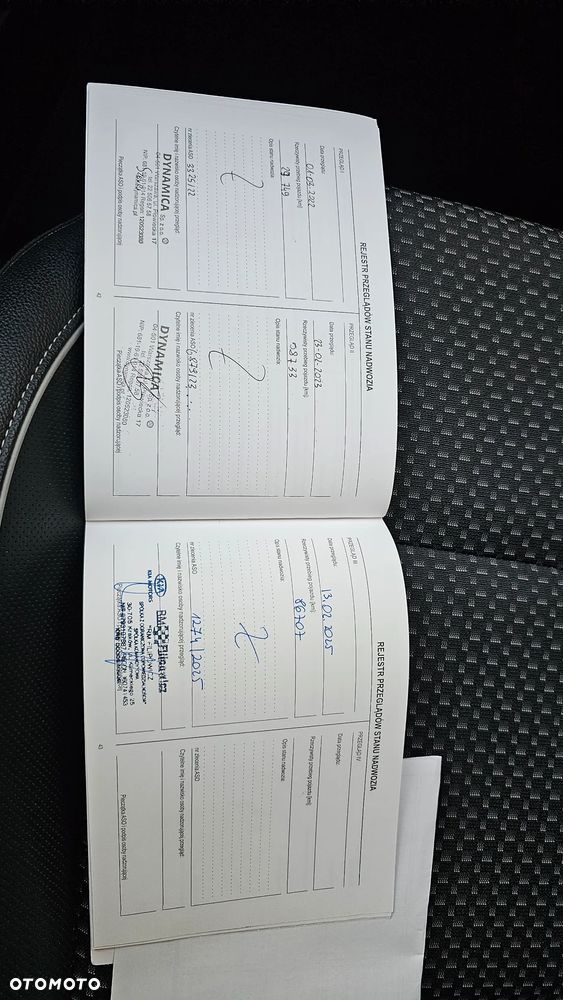 REJESTR PRZEGLĄDÓW STANU NADWOZIA
PRZEGLĄD I
Data przeglądu:
01.03.2022
Rzeczywisty przebieg pojazdu [km]:
29 749
Opis stanu nadwozia:
nr zlecenia ASO
3325/22
Czytelne imię i nazwisko osoby nadzorującej przegląd:
DYNAMICA Sp. z o.o.
Pieczątka ASO i podpis osoby nadzorującej
42
PRZEGLĄD II
Data przeglądu:
23-02.2023
Rzeczywisty przebieg pojazdu [km]:
Opis stanu nadwozia:
nr zlecenia ASO
6873/23
Czytelne imię i nazwisko osoby nadzorującej przegląd:
DYNAMICA
Pieczątka ASO i podpis osoby nadzorującej
REJESTR PRZEGLĄDÓW STANU NADWOZIA
PRZEGLĄD III
Data przeglądu:
13.02.2025
Rzeczywisty przebieg pojazdu [km]:
86707
Opis stanu nadwozia:
nr zlecenia ASO
1274/2025
Czytelne imię i nazwisko osoby nadzorującej przegląd:
KIA
KIA MOTORS
43
PRZEGLĄD IV
Data przeglądu:
Rzeczywisty przebieg pojazdu [km]:
Opis stanu nadwozia:
nr zlecenia ASO
Czytelne imię i nazwisko osoby nadzorującej przegląd:
Pieczątka ASO i podpis osoby nadzorującej
OTOMOTO